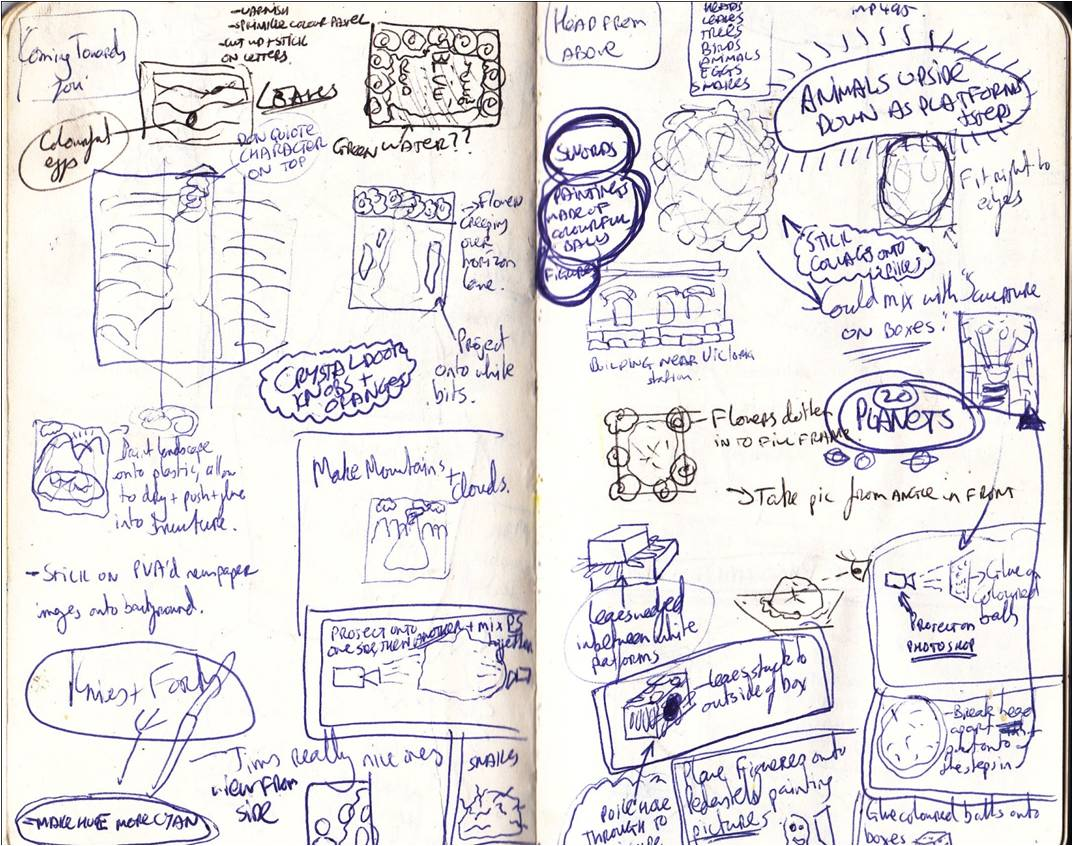 Coming Towards
You
- VARNISH
- SPRINKLE COLOUR PASTEL
- CUT UP + STICK
ON LETTERS.
LEAVES
Colourful
eggs
DON QUIOTE
CHARACTER
ON TOP
GREEN WATER??
→ Flowers
creeping
over
horizon
line.
Project
onto white
bits.
CRYSTAL DOOR
KNOBS +
ORANGES
Paint landscape
onto plastic, allow
to dry + push + glue
into
Make Mountains
+ clouds.
- STICK ON PVA'd newspaper
images onto background.
PROJECT ONTO
ONE SIDE THEN ANOTHER + MIX PS
together
Knives + Forks
→ Jim's really nice ones
view from
side
SNAKES
- MAKE MORE CYAN
HEAD FROM
ABOVE
HEADS
LEAVES
TREES
BIRDS
ANIMALS
EGGS
SNAKES
MP495.
ANIMALS UPSIDE
DOWN AS PLATFORMS
SWORDS
PAINTINGS
MADE OF
COLOURFUL
BALLS
FIGURES
Fit right to
edges
STICK
COLLAGES ONTO
Could mix with "Sculpture
on Boxes."
BUILDING NEAR Victoria
station.
20
PLANETS
- Flowers
IN TO FILL FRAME
→ TAKE PIC from ANGLE IN FRONT
Leaves needed
inbetween white
platforms
→ Glue on
coloured
balls
PROJECT ON
PHOTOSHOP
- Leaves stuck to
outside of box
- Break
apart
onto
the steps in
POKE HOLE
THROUGH TO
Place Figures onto
painting
pictures
Glue coloured balls onto
boxes